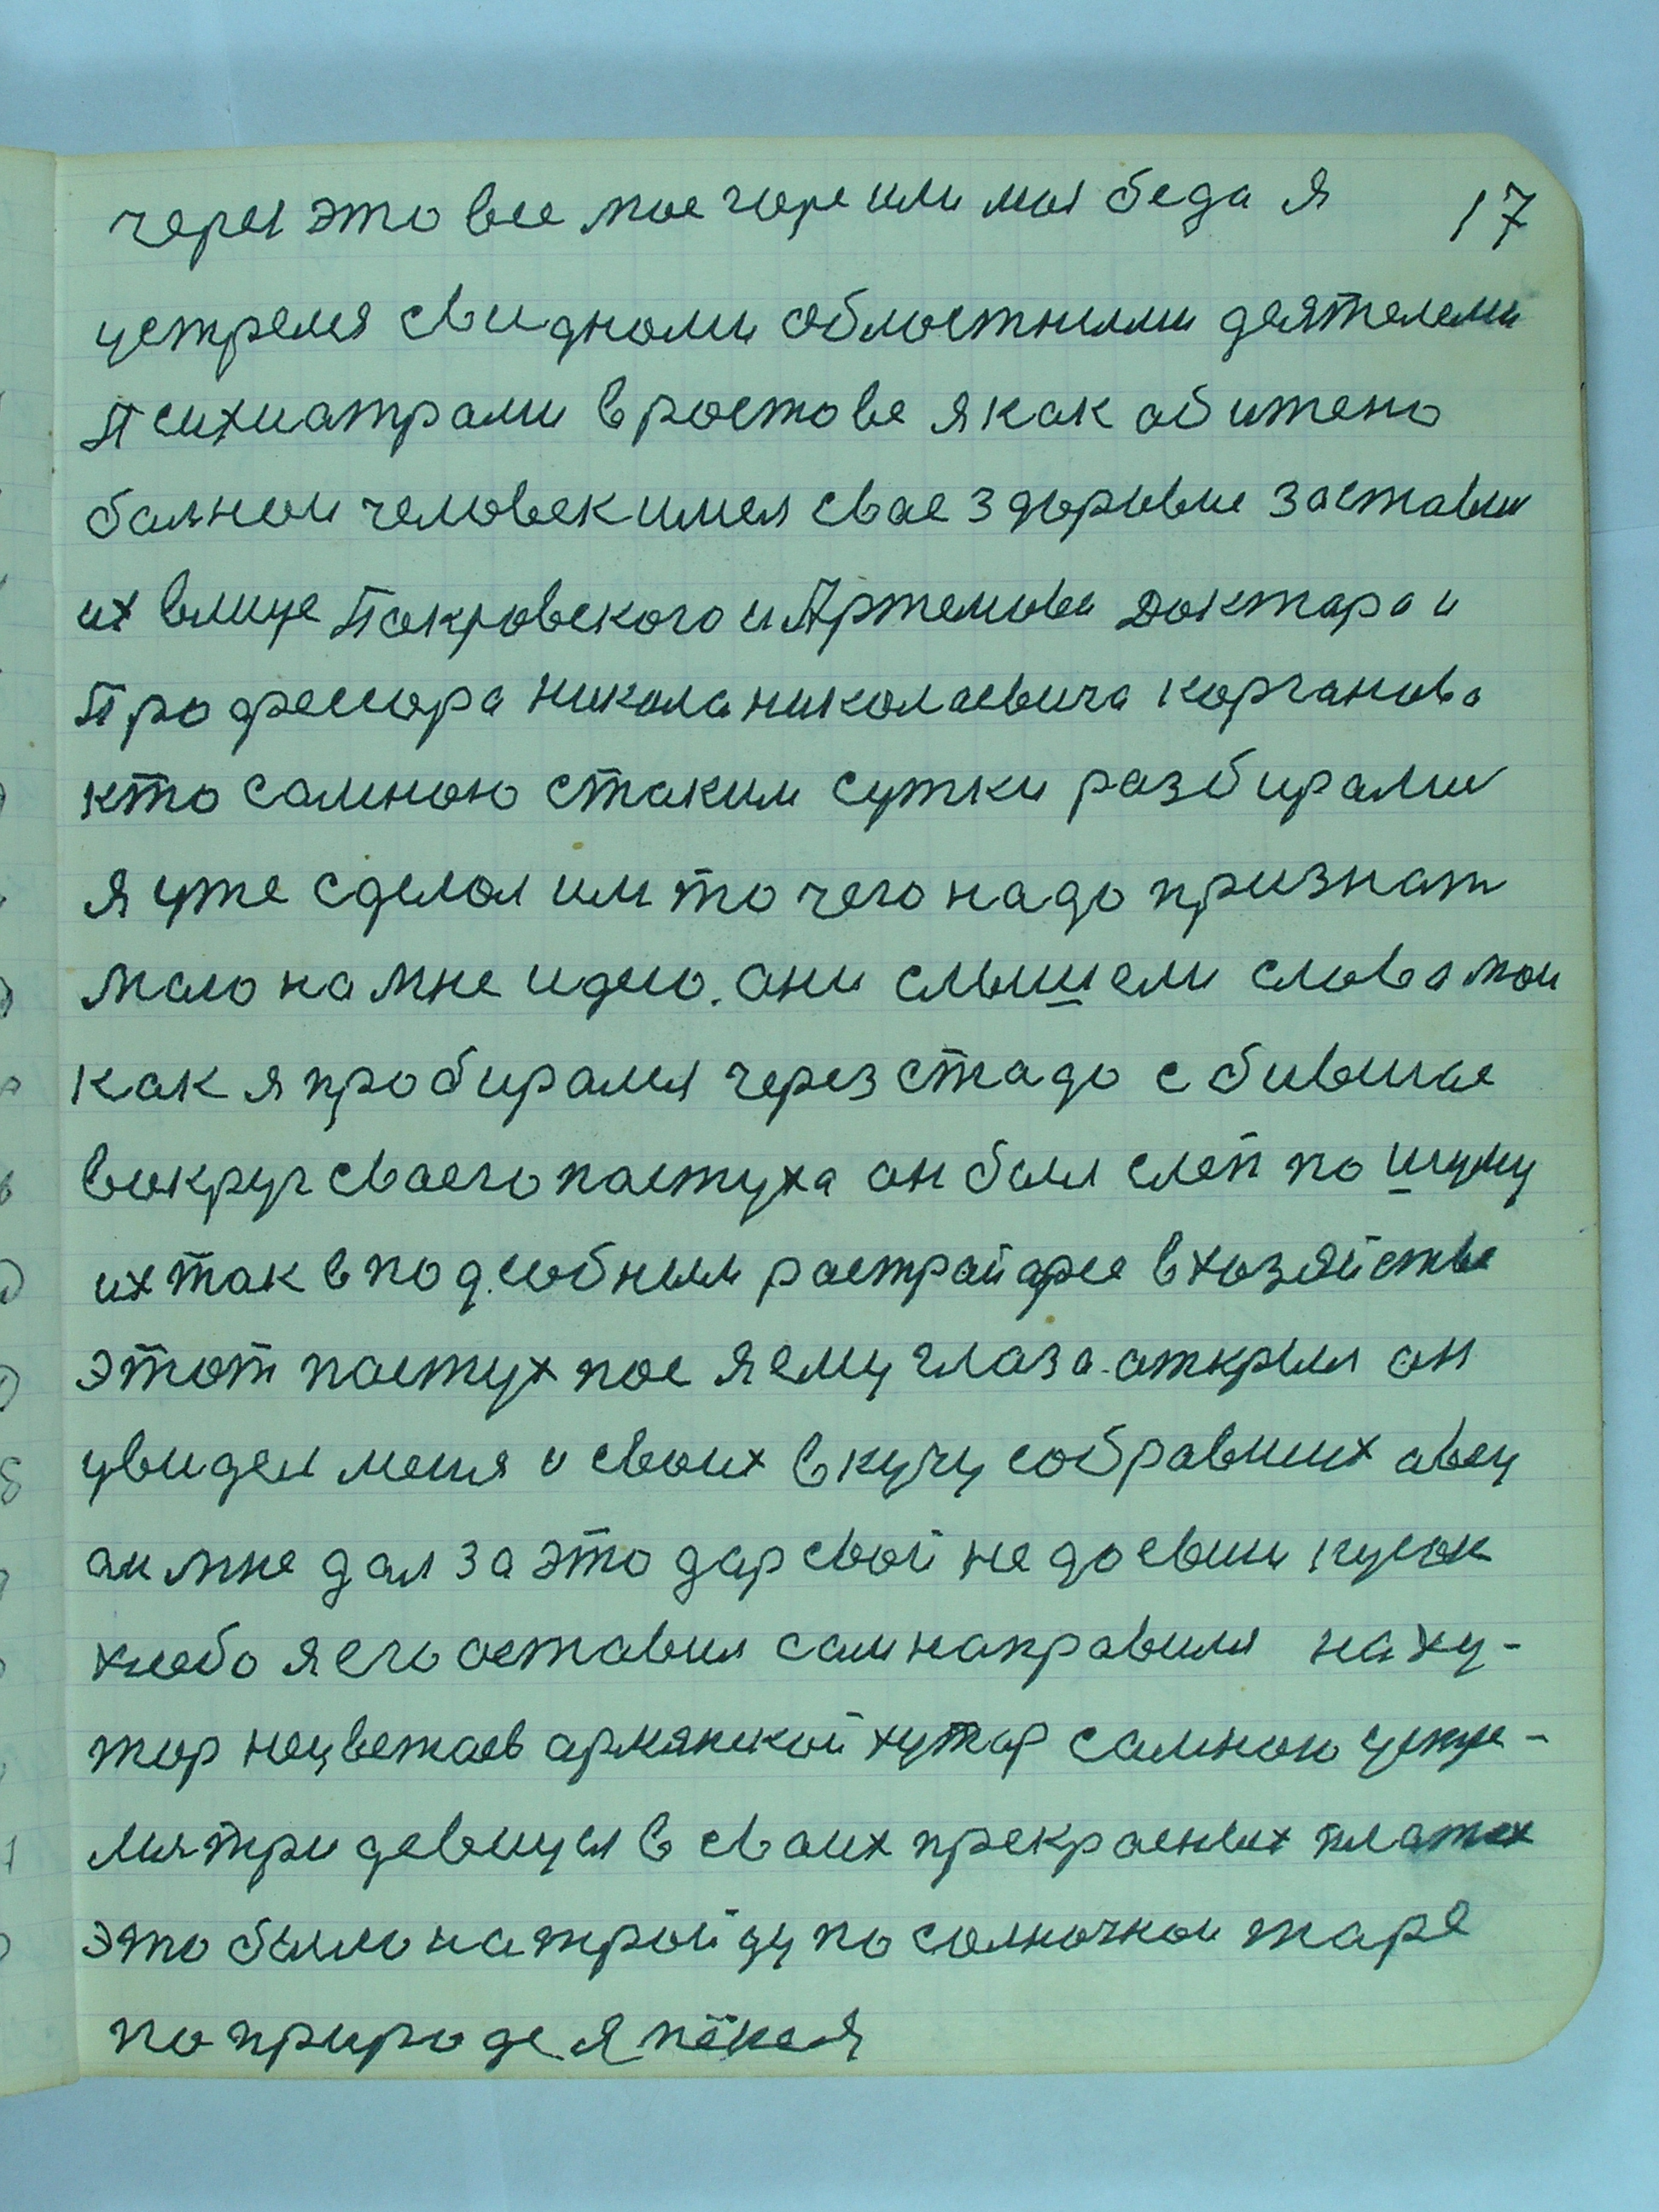 через это все мое горе или моя беда я 17
устрелся свидноми областными деятелеми
Психиатрами в ростове я как обитено
болнои человек имел свае здоровие заставил
их влице Покровского и Артемова доктара и
Профессора никола николаевича корганова
кто самною стаким сутки разбиралис
я уже сделол им то чего надо признат
мало на мне идею. они слышели слова мои
как я пробирался через стадо сбившие
вокруг своего пастуха он был слеп по шуму
их так в подсобным растрайфсе в хозяйстве
этот пастух пос я ему глаза открыл он
увидел меня и своих в кучу собравших авец
он мне дал за это дар свой не доевши кусок
хлеба я его оставил сам направился на ху-
тор нецветаев армянскои хутар самною устре-
лис три девицы в своих прекрасных платех
это было на тройцу по солночнои жаре
по природе я пёкся